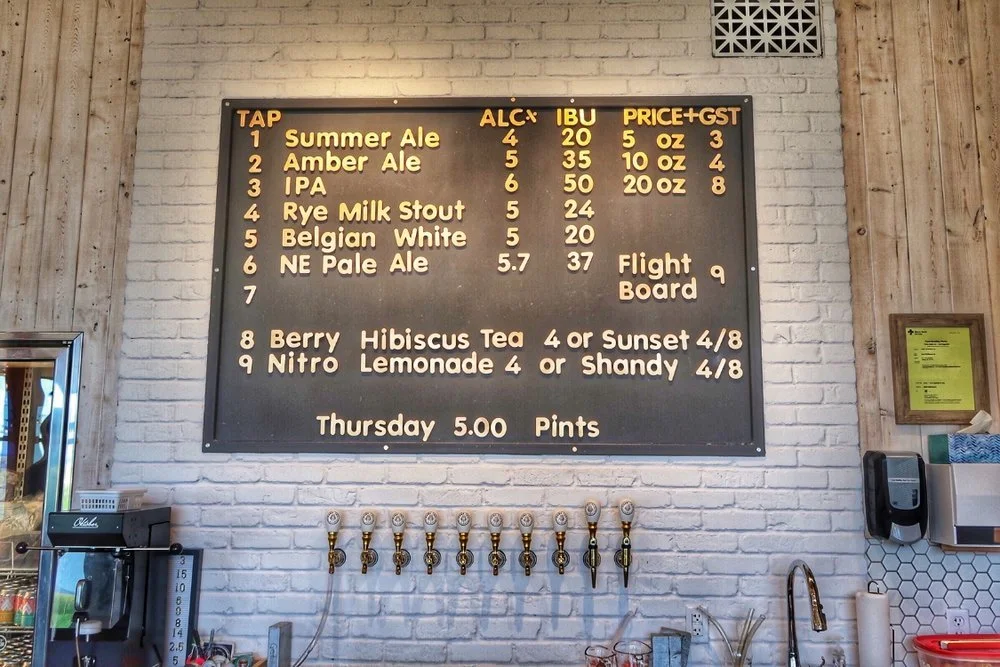 TAP ALC% IBU PRICE+GST
1 Summer Ale 4 20 5 oz 3
2 Amber Ale 5 35 10 oz 4
3 IPA 6 50 20 oz 8
4 Rye Milk Stout 5 24
5 Belgian White 5 20
6 NE Pale Ale 5.7 37 Flight 9
7 Board
8 Berry Hibiscus Tea 4 or Sunset 4/8
9 Nitro Lemonade 4 or Shandy 4/8
Thursday 5.00 Pints
3
15
10
60
8
14.5
2.5
5